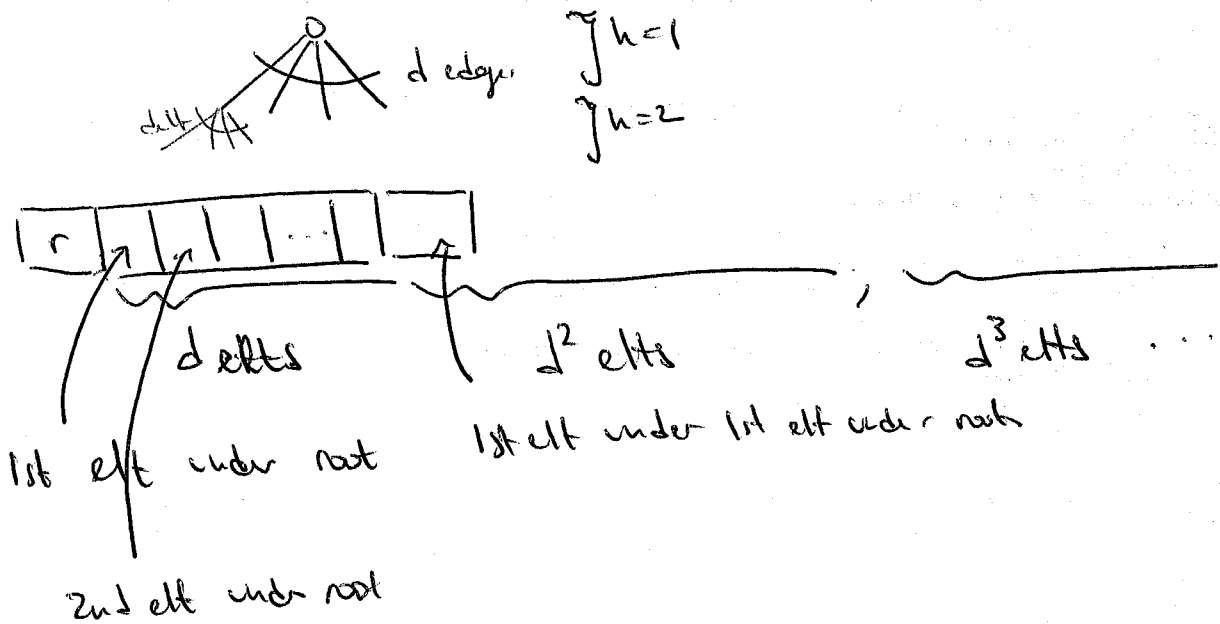 h=1
d edges
d elt
h=2
r ...
d elts d² elts , d³ elts ...
1st elt under root 1st elt under 1st elt under root
2nd elt under root